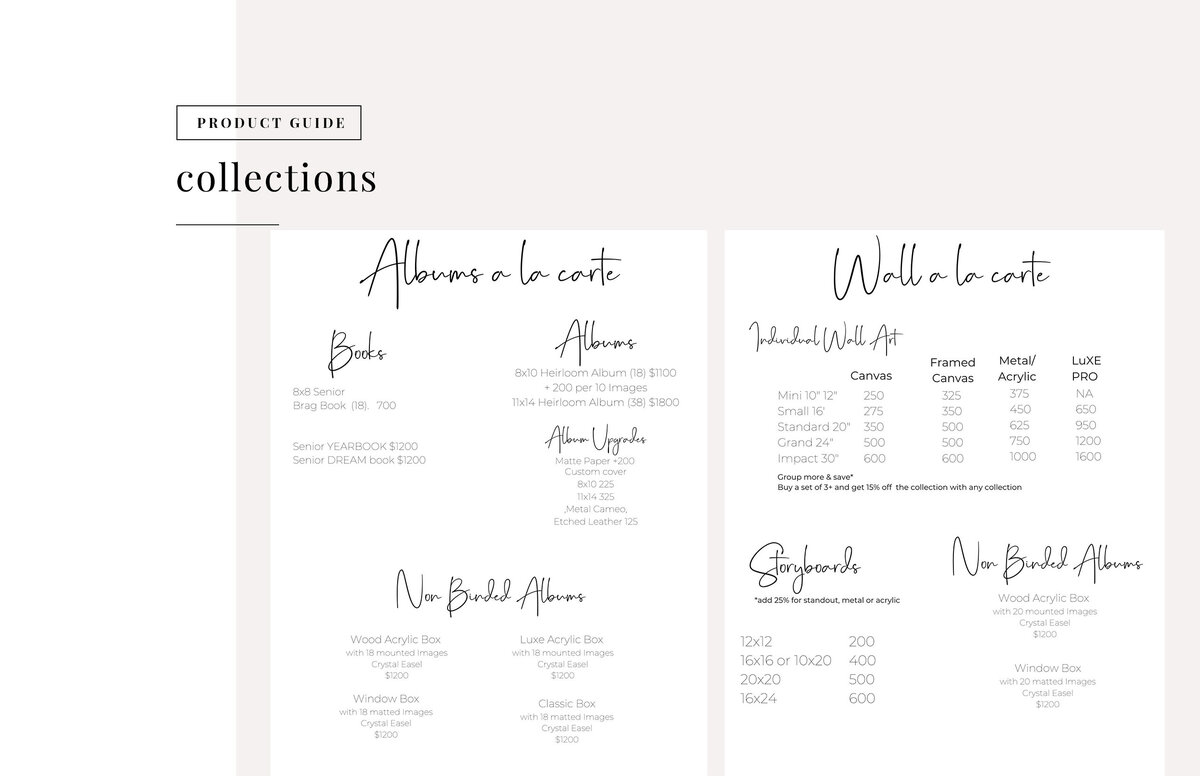 PRODUCT GUIDE
collections
Albums a la carte
Books
8x8 Senior
Brag Book (18). 700
Senior YEARBOOK $1200
Senior DREAM book $1200
Albums
8x10 Heirloom Album (18) $1100
+ 200 per 10 Images
11x14 Heirloom Album (38) $1800
Album Upgrades
Matte Paper +200
Custom cover
8x10 225
11x14 325
,Metal Cameo,
Etched Leather 125
Non Binded Albums
Wood Acrylic Box
with 18 mounted Images
Crystal Easel
$1200
Luxe Acrylic Box
with 18 mounted Images
Crystal Easel
$1200
Window Box
with 18 matted Images
Crystal Easel
$1200
Classic Box
with 18 matted Images
Crystal Easel
$1200
Wall a la carte
Individual Wall Art
Canvas Framed Canvas Metal/ Acrylic LuXE PRO
Mini 10" 12" 250 325 375 NA
Small 16' 275 350 450 650
Standard 20" 350 500 625 950
Grand 24" 500 500 750 1200
Impact 30" 600 600 1000 1600
Group more & save*
Buy a set of 3+ and get 15% off the collection with any collection
Storyboards
*add 25% for standout, metal or acrylic
12x12 200
16x16 or 10x20 400
20x20 500
16x24 600
Non Binded Albums
Wood Acrylic Box
with 20 mounted Images
Crystal Easel
$1200
Window Box
with 20 matted Images
Crystal Easel
$1200